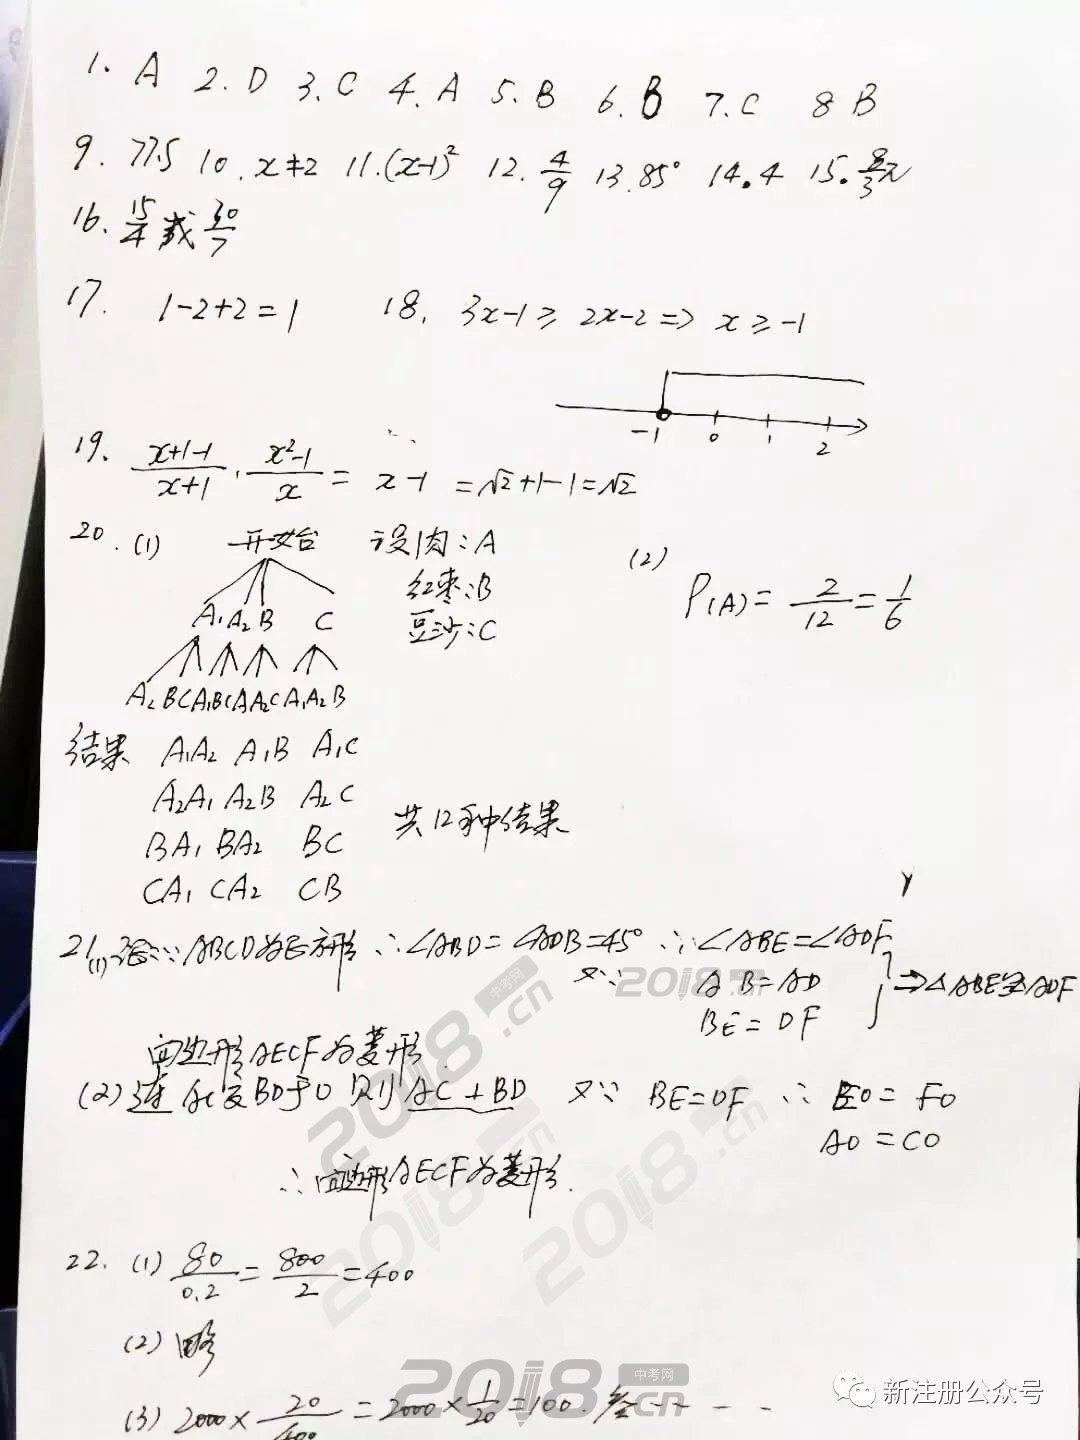 1. A 2. D 3. C 4. A 5. B 6. B 7. C 8 B
9. 77.5 10. x≠2 11. (x-1)² 12. 4/9 13. 85° 14. 4 15. 8/3π
16. 15/4 或 30/7
17. 1-2+2=1 18. 3x-1≥2x-2=> x≥-1
-1 0 1 2
19. (x+1-1)/(x+1) · (x²-1)/x = x-1 = √2+1-1=√2
20. (1) 开始 设肉:A (2)
红枣:B P(A)= 2/12 = 1/6
A₁ A₂ B C 豆沙:C
A₂ B C A₁ B C A₁ A₂ C A₁ A₂ B
结果 A₁A₂ A₁B A₁C
A₂A₁ A₂B A₂C
共12种结果
BA₁ BA₂ BC
CA₁ CA₂ CB
21. (1) ∵ ABCD为正方形 ∴∠ABD=∠ADB=45° ∴∠ABE=∠ADF
又∵ AB=AD => △ABE≌△ADF
BE=DF
四边形AECF为菱形
(2) 连AC交BD于O 则AC⊥BD 又∵ BE=DF ∴ EO=FO
AO=CO
∴四边形AECF为菱形.
22. (1) 80/0.2 = 800/2 = 400
(2) 略
(3) 2000× 20/400 = 2000× 1/20 =100.
中考网
2018.cn
新注册公众号